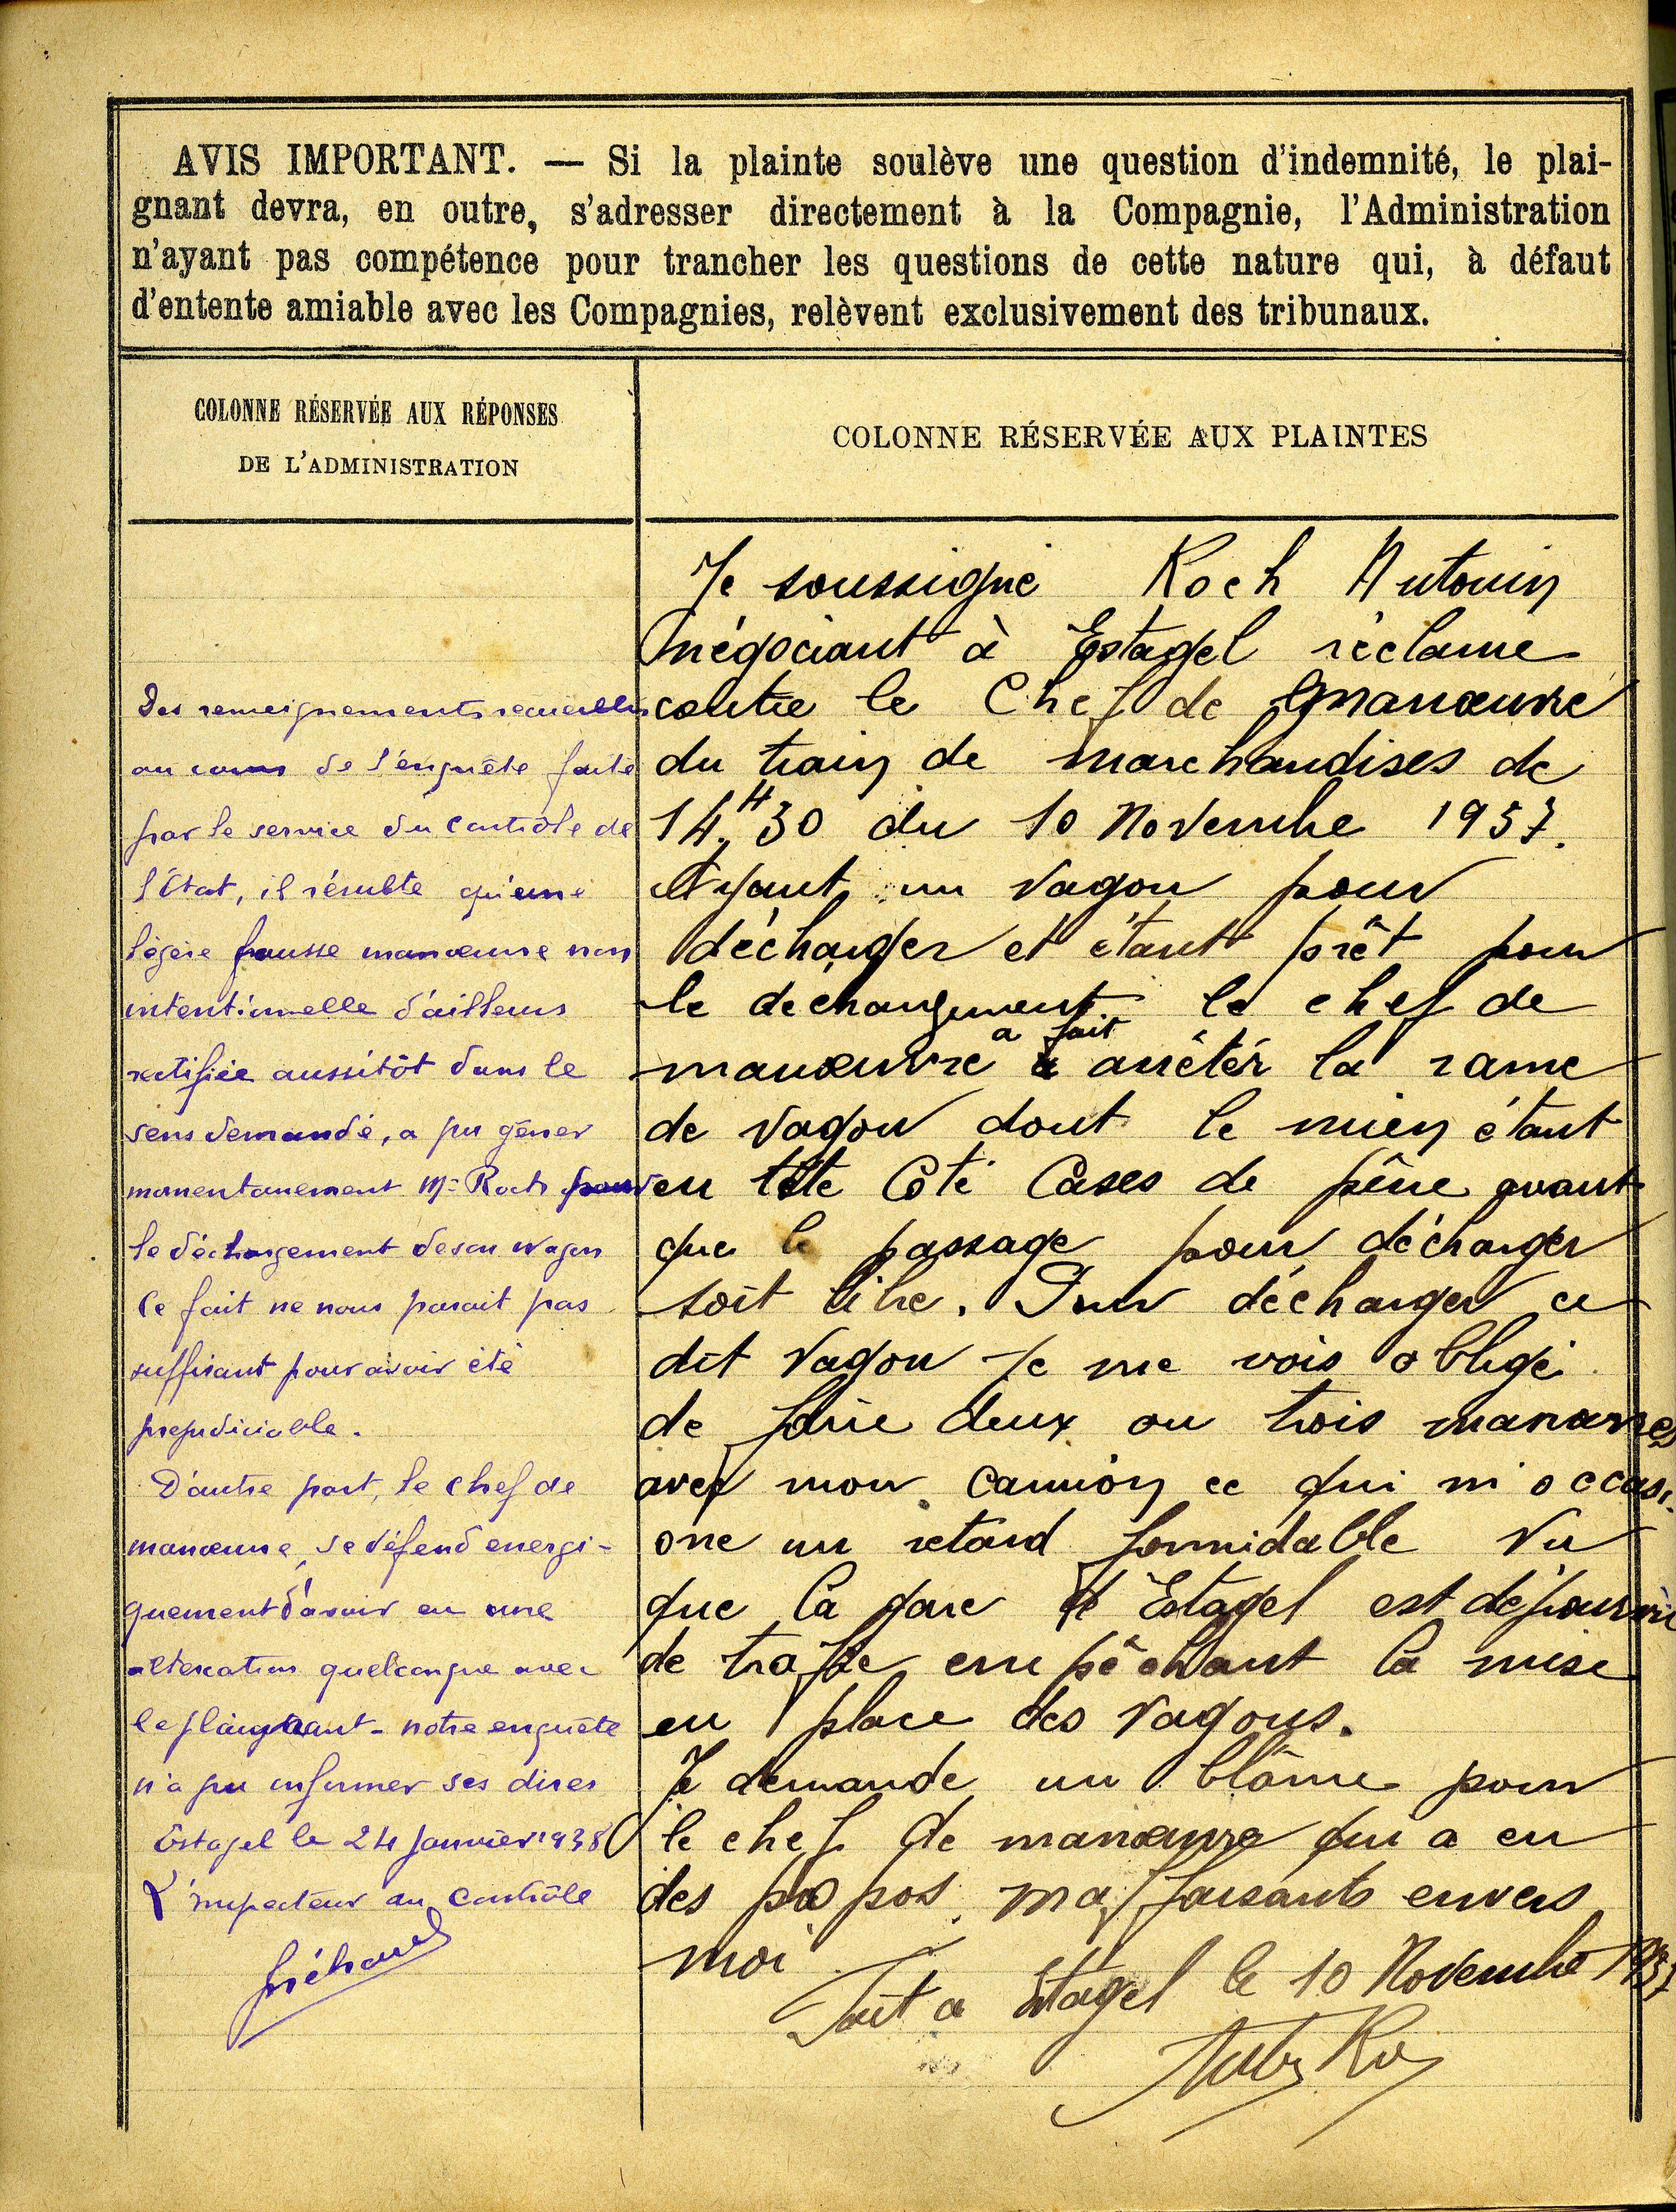 AVIS IMPORTANT. — Si la plainte soulève une question d'indemnité, le plai-
gnant devra, en outre, s'adresser directement à la Compagnie, l'Administration
n'ayant pas compétence pour trancher les questions de cette nature qui, à défaut
d'entente amiable avec les Compagnies, relèvent exclusivement des tribunaux.
COLONNE RÉSERVÉE AUX RÉPONSES
DE L'ADMINISTRATION
Des renseignements recueillis
au cours de l'enquête faite
par le service du Contrôle de
l'État, il résulte qu'une
légère fausse manœuvre non
intentionnelle d'ailleurs
rectifiée aussitôt dans le
sens demandé, a pu gêner
momentanement Mr Roch pour
le déchargement de son wagon
Ce fait ne nous parait pas
suffisant pour avoir été
prejudiciable.
D'autre part, le chef de
manœuvre, se défend energi-
quement d'avoir eu une
altercation quelconque avec
le plaignant - notre enquête
n'a pu infirmer ses dires
Estagel le 24 Janvier 1938
L'inspecteur au Contrôle
COLONNE RÉSERVÉE AUX PLAINTES
Je soussigné Roch Antonin
négociant à Estagel réclame
contre le Chef de manœuvre
du train de marchandises de
14H30 du 10 Novembre 1937.
Ayant un vagon pour
décharger et étant prêt pour
le dechargement le chef de
manœuvre a fait arrêtér la rame
de vagon dont le mien étant
en tête Côté Cases de pêne avant
que le passage pour décharger
soit libre. Pour décharger ce
dit vagon Je me vois obligé
de faire deux ou trois manœuvres
avec mon camion ce qui m'occasi-
one un retard formidable vu
que la gare d'Estagel est dépourvue
de trafic empêchant la mise
en place des vagons.
Je demande un blâme pour
le chef de manœuvre qui a eu
des propos malfaisants envers
moi
Fait a Estagel le 10 Novembre 1937